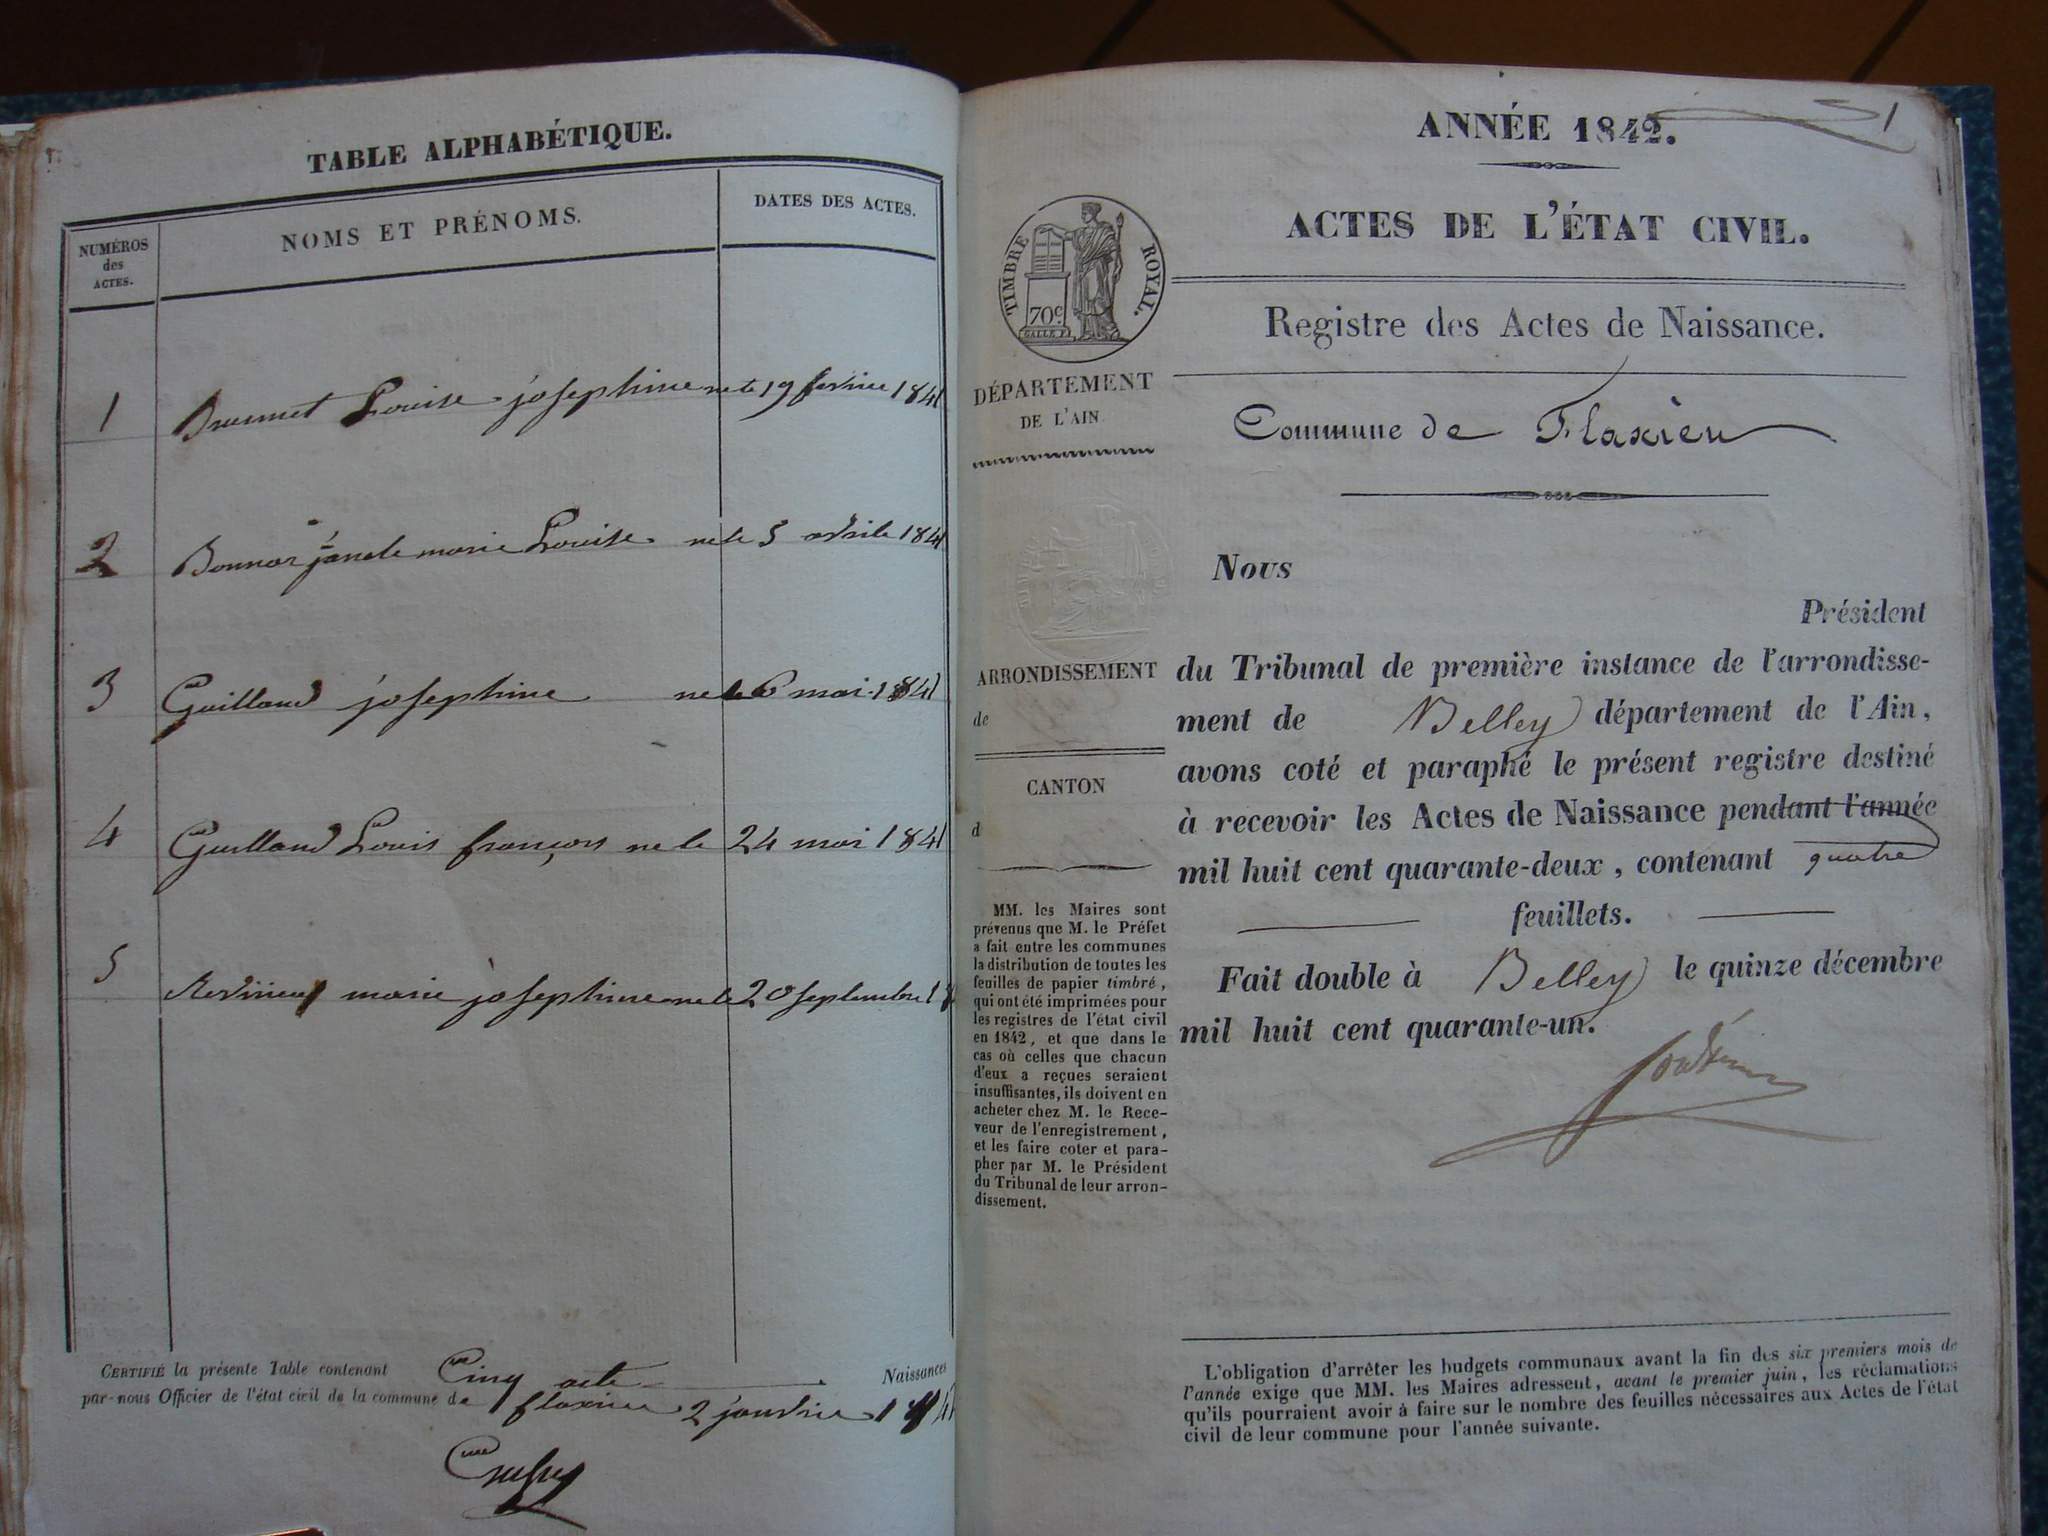 TABLE ALPHABÉTIQUE.
NUMÉROS
des
ACTES.
NOMS ET PRÉNOMS.
DATES DES ACTES.
1 Louise josephine ne le 19 fevrier 1841
2 marie Louise ne le 5 avrile 1841
3 Guilland josephine ne le 6 mai 1841
4 Guilland Louis françois ne le 24 mai 1841
5 marie josephine ne le 20 septembre 18
CERTIFIÉ la présente Table contenant Cinq acte Naissances
par nous Officier de l'état civil de la commune de flaxieu 2 janvier 1842
ANNÉE 1842.
1
ACTES DE L'ÉTAT CIVIL.
TIMBRE ROYAL.
70c
GALLE F.
Registre des Actes de Naissance.
DÉPARTEMENT
DE L'AIN
Commune de Flaxieu
Nous
Président
ARRONDISSEMENT
de
CANTON
d
du Tribunal de première instance de l'arrondisse-
ment de Belley département de l'Ain,
avons coté et paraphé le présent registre destiné
à recevoir les Actes de Naissance pendant l'année
mil huit cent quarante-deux, contenant quatre
feuillets.
Fait double à Belley le quinze décembre
mil huit cent quarante-un.
MM. les Maires sont
prévenus que M. le Préfet
a fait entre les communes
la distribution de toutes les
feuilles de papier timbré,
qui ont été imprimées pour
les registres de l'état civil
en 1842, et que dans le
cas où celles que chacun
d'eux a reçues seraient
insuffisantes, ils doivent en
acheter chez M. le Rece-
veur de l'enregistrement,
et les faire coter et para-
pher par M. le Président
du Tribunal de leur arron-
dissement.
L'obligation d'arrêter les budgets communaux avant la fin des six premiers mois de
l'année exige que MM. les Maires adressent, avant le premier juin, les réclamations
qu'ils pourraient avoir à faire sur le nombre des feuilles nécessaires aux Actes de l'état
civil de leur commune pour l'année suivante.